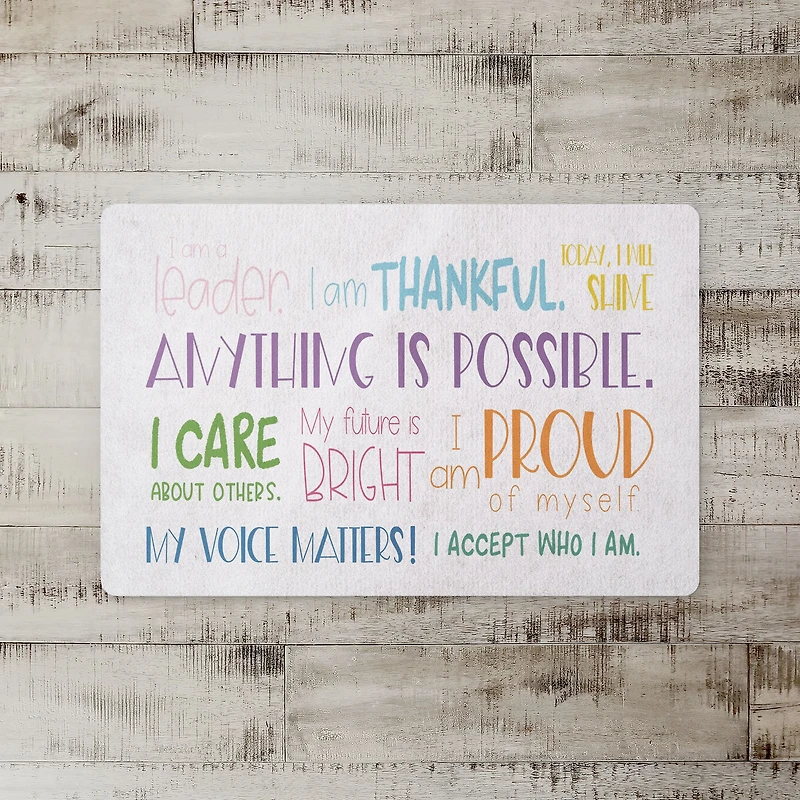 I am a
leader.
I am THANKFUL.
TODAY, I WILL
SHINE
ANYTHING IS POSSIBLE.
I CARE
ABOUT OTHERS.
My future is
BRIGHT
I
am PROUD
of myself
MY VOICE MATTERS!
I ACCEPT WHO I AM.